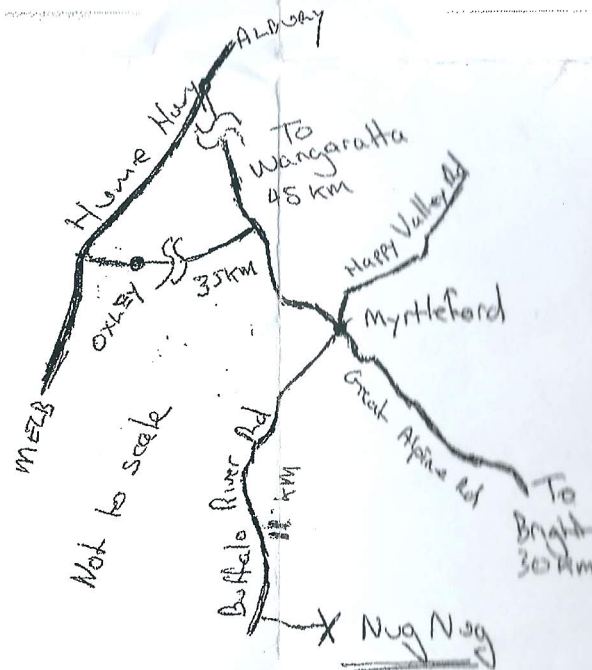 ALBURY
Hume Hwy
To
Wangaratta
45 KM
Happy Valley Rd
OXLEY
35KM
Myrtleford
MELB
Great Alpine Rd
Not to scale
Buffalo River Rd
KM
To
Bright
30 Km
Nug Nug